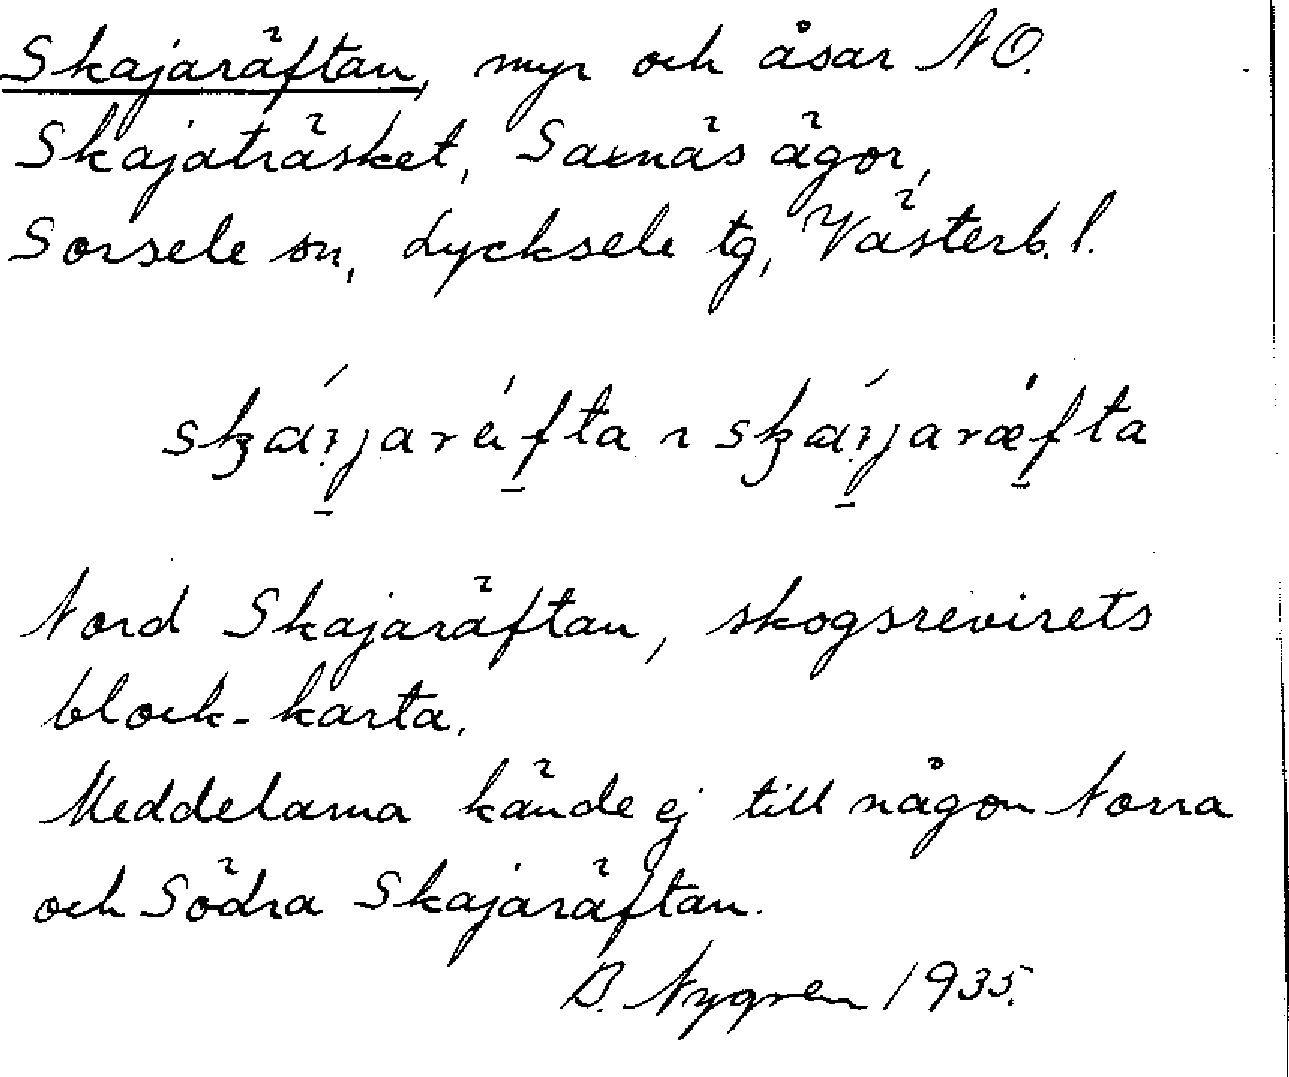 Skajaräftan, myr och åsar NO.
Skajaträsket, Saxnäs ägor,
Sorsele sn, Lycksele tg, Västerb. l.
Nord Skajaräftan, skogsrevirets
block-karta.
Meddelarna kände ej till någon Norra
och Södra Skajaräftan.
B. Nygren 1935.